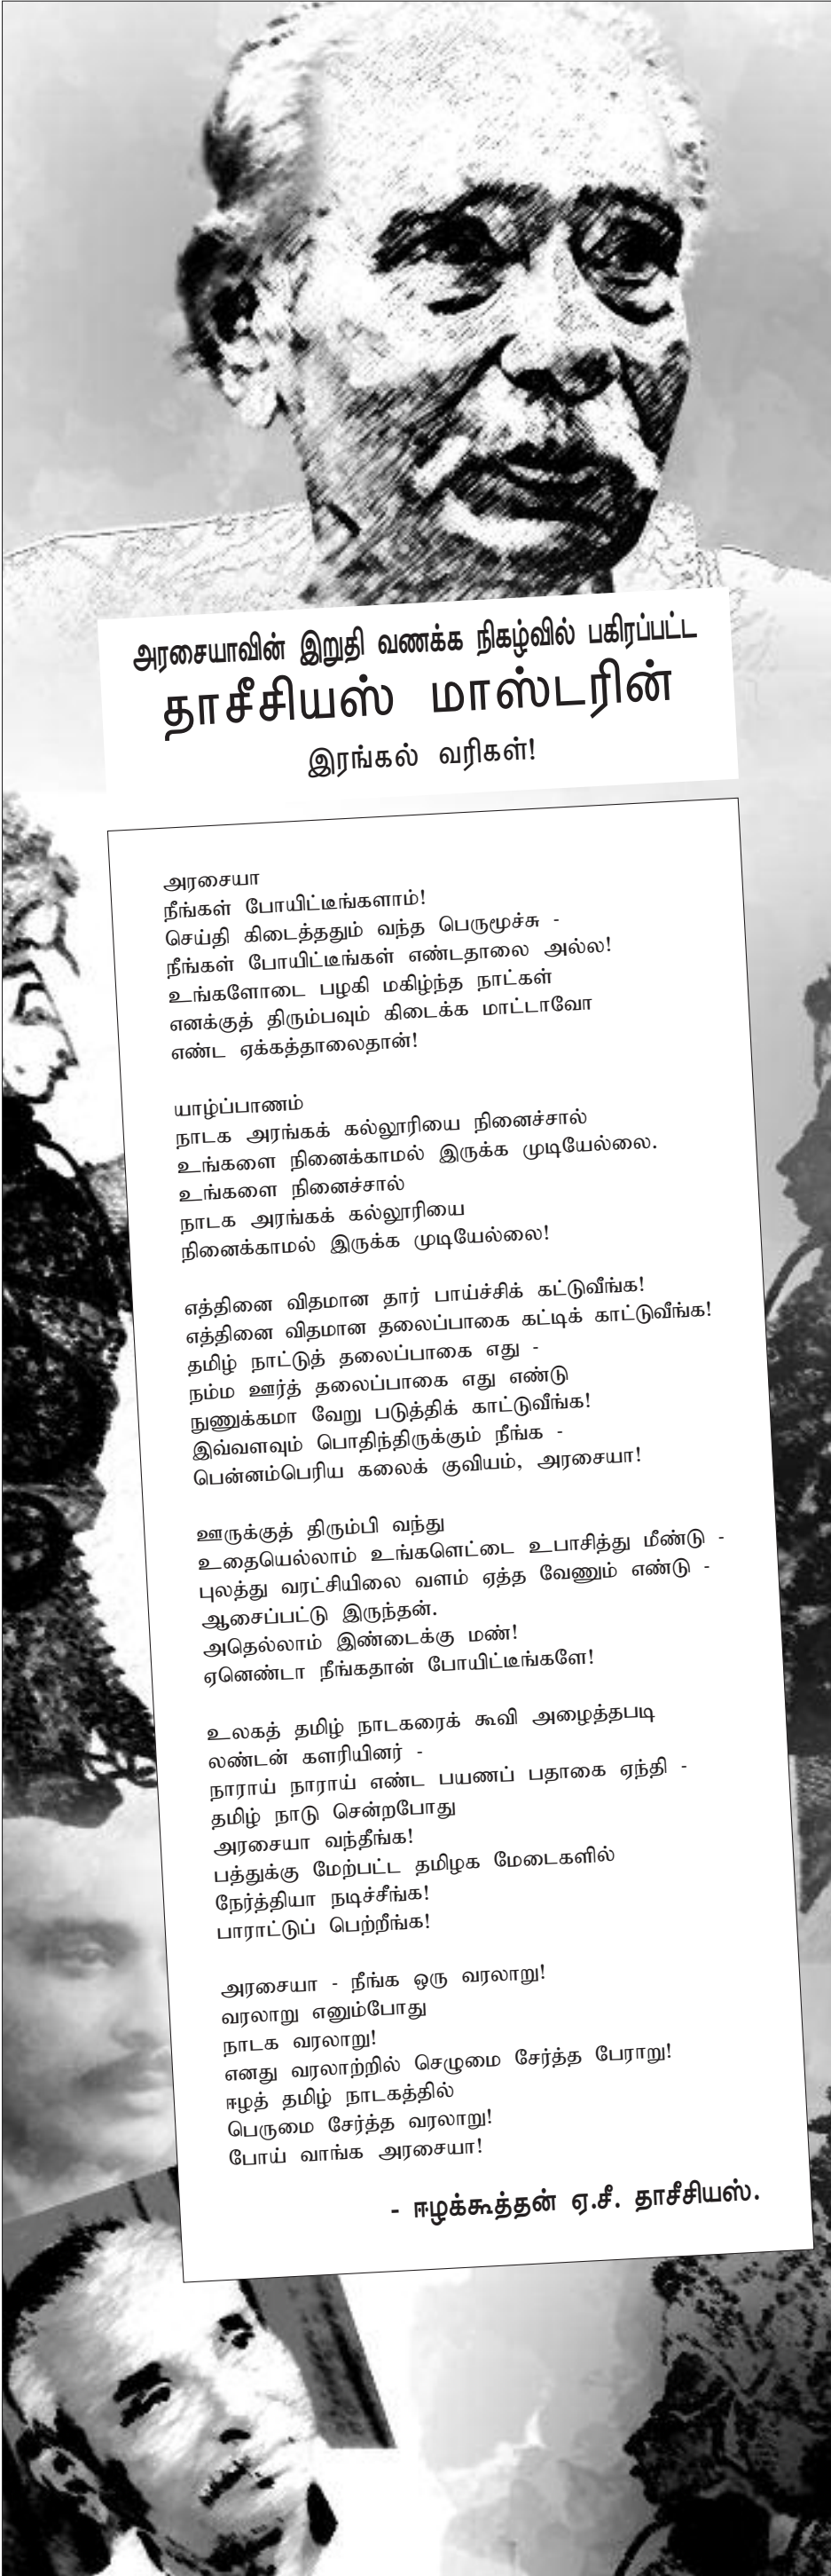 அரசையாவின் இறுதி வணக்க நிகழ்வில் பகிரப்பட்ட
தாசீசியஸ் மாஸ்டரின்
இரங்கல் வரிகள்!
அரசையா
நீங்கள் போயிட்டீங்களாம்!
செய்தி கிடைத்ததும் வந்த பெருமூச்சு -
நீங்கள் போயிட்டீங்கள் எண்டதாலை அல்ல!
உங்களோடை பழகி மகிழ்ந்த நாட்கள்
எனக்குத் திரும்பவும் கிடைக்க மாட்டாவோ
எண்ட ஏக்கத்தாலைதான்!
யாழ்ப்பாணம்
நாடக அரங்கக் கல்லூரியை நினைச்சால்
உங்களை நினைக்காமல் இருக்க முடியேல்லை.
உங்களை நினைச்சால்
நாடக அரங்கக் கல்லூரியை
நினைக்காமல் இருக்க முடியேல்லை!
எத்தினை விதமான தார் பாய்ச்சிக் கட்டுவீங்க!
எத்தினை விதமான தலைப்பாகை கட்டிக் காட்டுவீங்க!
தமிழ் நாட்டுத் தலைப்பாகை எது -
நம்ம ஊர்த் தலைப்பாகை எது எண்டு
நுணுக்கமா வேறு படுத்திக் காட்டுவீங்க!
இவ்வளவும் பொதிந்திருக்கும் நீங்க -
பென்னம்பெரிய கலைக் குவியம், அரசையா!
ஊருக்குத் திரும்பி வந்து
உதையெல்லாம் உங்களெட்டை உபாசித்து மீண்டு -
புலத்து வரட்சியிலை வளம் ஏத்த வேணும் எண்டு -
ஆசைப்பட்டு இருந்தன்.
அதெல்லாம் இண்டைக்கு மண்!
ஏனெண்டா நீங்கதான் போயிட்டீங்களே!
உலகத் தமிழ் நாடகரைக் கூவி அழைத்தபடி
லண்டன் களரியினர் -
நாராய் நாராய் எண்ட பயணப் பதாகை ஏந்தி -
தமிழ் நாடு சென்றபோது
அரசையா வந்தீங்க!
பத்துக்கு மேற்பட்ட தமிழக மேடைகளில்
நேர்த்தியா நடிச்சீங்க!
பாராட்டுப் பெற்றீங்க!
அரசையா - நீங்க ஒரு வரலாறு!
வரலாறு எனும்போது
நாடக வரலாறு!
எனது வரலாற்றில் செழுமை சேர்த்த பேராறு!
ஈழத் தமிழ் நாடகத்தில்
பெருமை சேர்த்த வரலாறு!
போய் வாங்க அரசையா!
- ஈழக்கூத்தன் ஏ.சீ. தாசீசியஸ்.